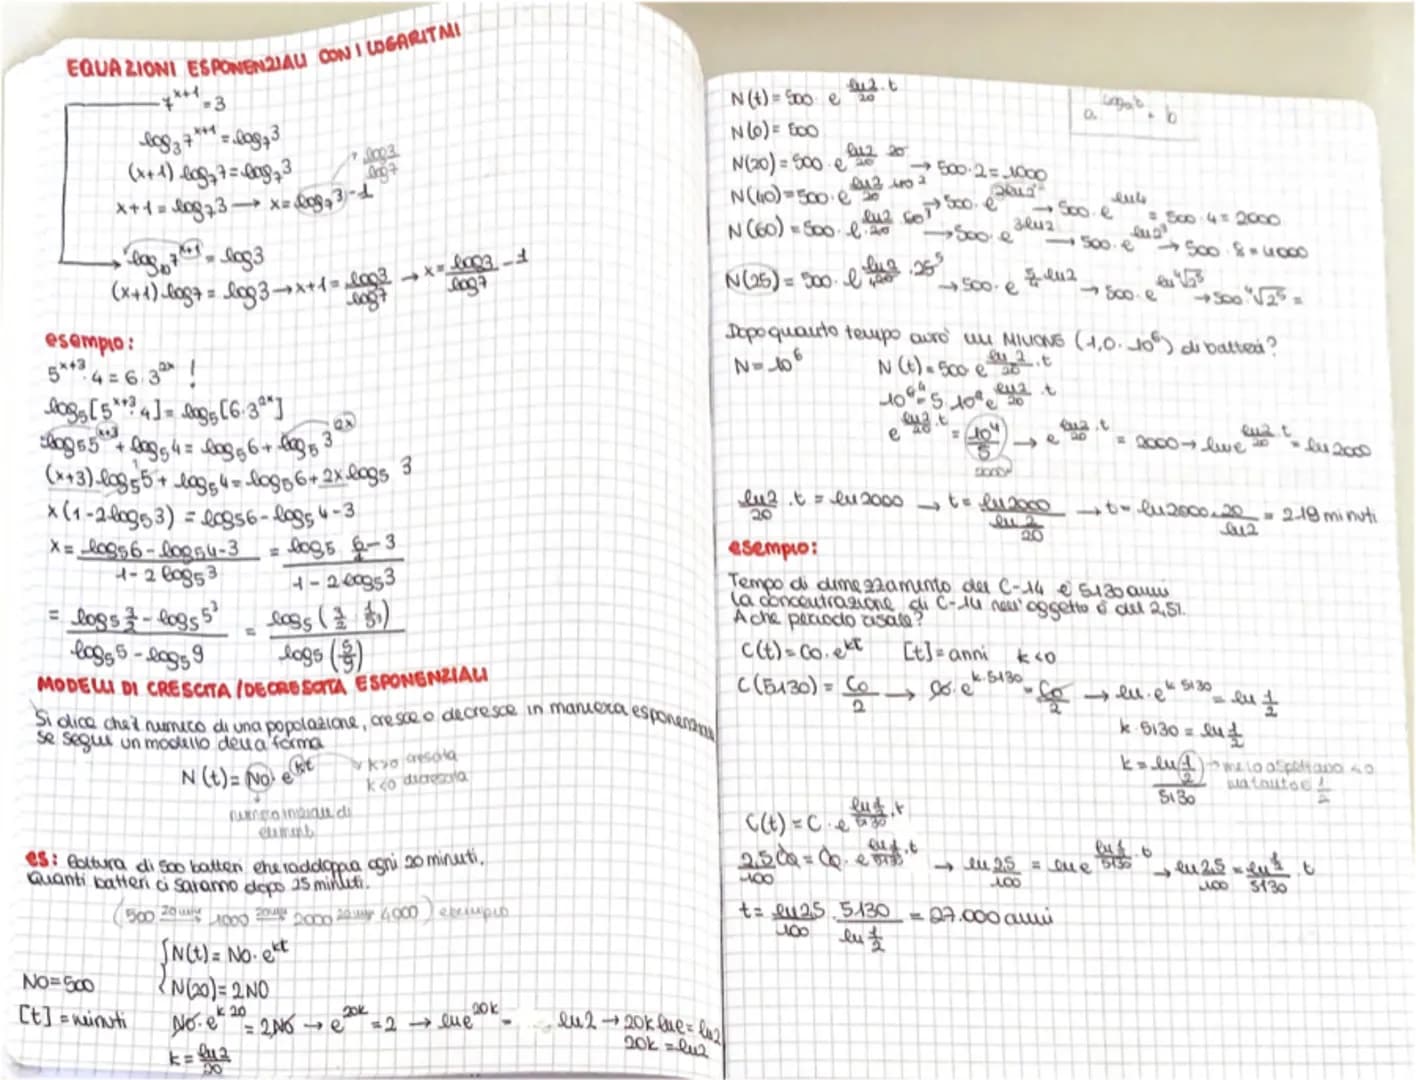 EQUAZIONI ESPONENZIALI CON I LOGARITMI
7^(x+1) = 3
log₃7^(x+1) = log₇3
(x+1) log₇7 = log₇3
x+1 = log₇3 → x = log₇3 - 1
log3/log7
log₁₀7^(x+1) = log3
(x+1)·log7 = log3 → x+1 = log3/log7 → x = log3/log7 - 1
esempio:
5^(x+3)·4 = 6·3^(2x) !
log₅[5^(x+3)·4] = log₅[6·3^(2x)]
log₅5^(x+3) + log₅4 = log₅6 + log₅3^(2x)
(x+3)·log₅5 + log₅4 = log₅6 + 2x·log₅3
x(1-2log₅3) = log₅6 - log₅4 - 3
x = (log₅6 - log₅4 - 3)/(1 - 2log₅3) = (log₅ 6/4 - 3)/(1 - 2log₅3)
= (log₅ 3/2 - log₅5³)/(log₅5 - log₅9) = log₅(3/2 · 1/5³)/log₅(5/9)
MODELLI DI CRESCITA/DECRESCITA ESPONENZIALI
Si dice che il numero di una popolazione, cresce o decresce in maniera esponenziale
se segue un modello della forma
N(t) = N0·e^(kt)
k>0 crescita
k<0 decrescita
numero iniziale di
elementi
es: Coltura di 500 batteri che raddoppia ogni 20 minuti.
Quanti batteri ci saranno dopo 25 minuti.
(500 20min→ 1000 20min→ 2000 20min→ 4000) esempio
{N(t) = N0·e^(kt)
N0=500 {N(20)= 2N0
[t] = minuti N0·e^(k·20) = 2N0 → e^(20k) = 2 → lne^(20k) = ln2 → 20k lne = ln2
20k = ln2
k = ln2/20
N(t) = 500·e^(ln2/20·t)
a^(logₐb) = b
N(0) = 500
N(20) = 500·e^(ln2/20·20) → 500·2 = 1000
N(40) = 500·e^(ln2/20·40) → 500·e^(2ln2) → 500·e^(ln4) = 500·4 = 2000
N(60) = 500·e^(ln2/20·60) → 500·e^(3ln2) → 500·e^(ln2³) → 500·8 = 4000
N(25) = 500·e^(ln2/20·25) → 500·e^(5/4 ln2) → 500·e^(ln⁴√2⁵) → 500 ⁴√2⁵ =
Dopo quanto tempo avrò un MILIONE (1,0·10⁶) di batteri?
N = 10⁶ N(t) = 500·e^(ln2/20·t)
10⁶ = 5·10² e^(ln2/20·t)
e^(ln2/20·t) = 10⁴/5 → e^(ln2/20·t) = 2000 → lne^(ln2/20·t) = ln2000
2000
ln2/20·t = ln2000 → t = ln2000/(ln2/20) → t = ln2000·20/ln2 = 219 minuti
esempio:
Tempo di dimezzamento del C-14 è 5130 anni
la concentrazione di C-14 nell'oggetto è del 2,5%.
A che periodo risale?
C(t) = C0·e^(kt) [t] = anni k<0
C(5130) = C0/2 → C0·e^(k·5130) = C0/2 → ln·e^(k·5130) = ln 1/2
k·5130 = ln 1/2
k = ln(1/2)/5130 → me lo aspettavo <0
C(t) = C·e^(ln½/5130·t)
2,5C0/100 = C0·e^(ln½/5130·t) → ln 2,5/100 = lne^(ln½/5130·t) → ln 2,5/100 = ln½/5130·t
t = ln 2,5/100 · 5130/ln½ = 27.000 anni